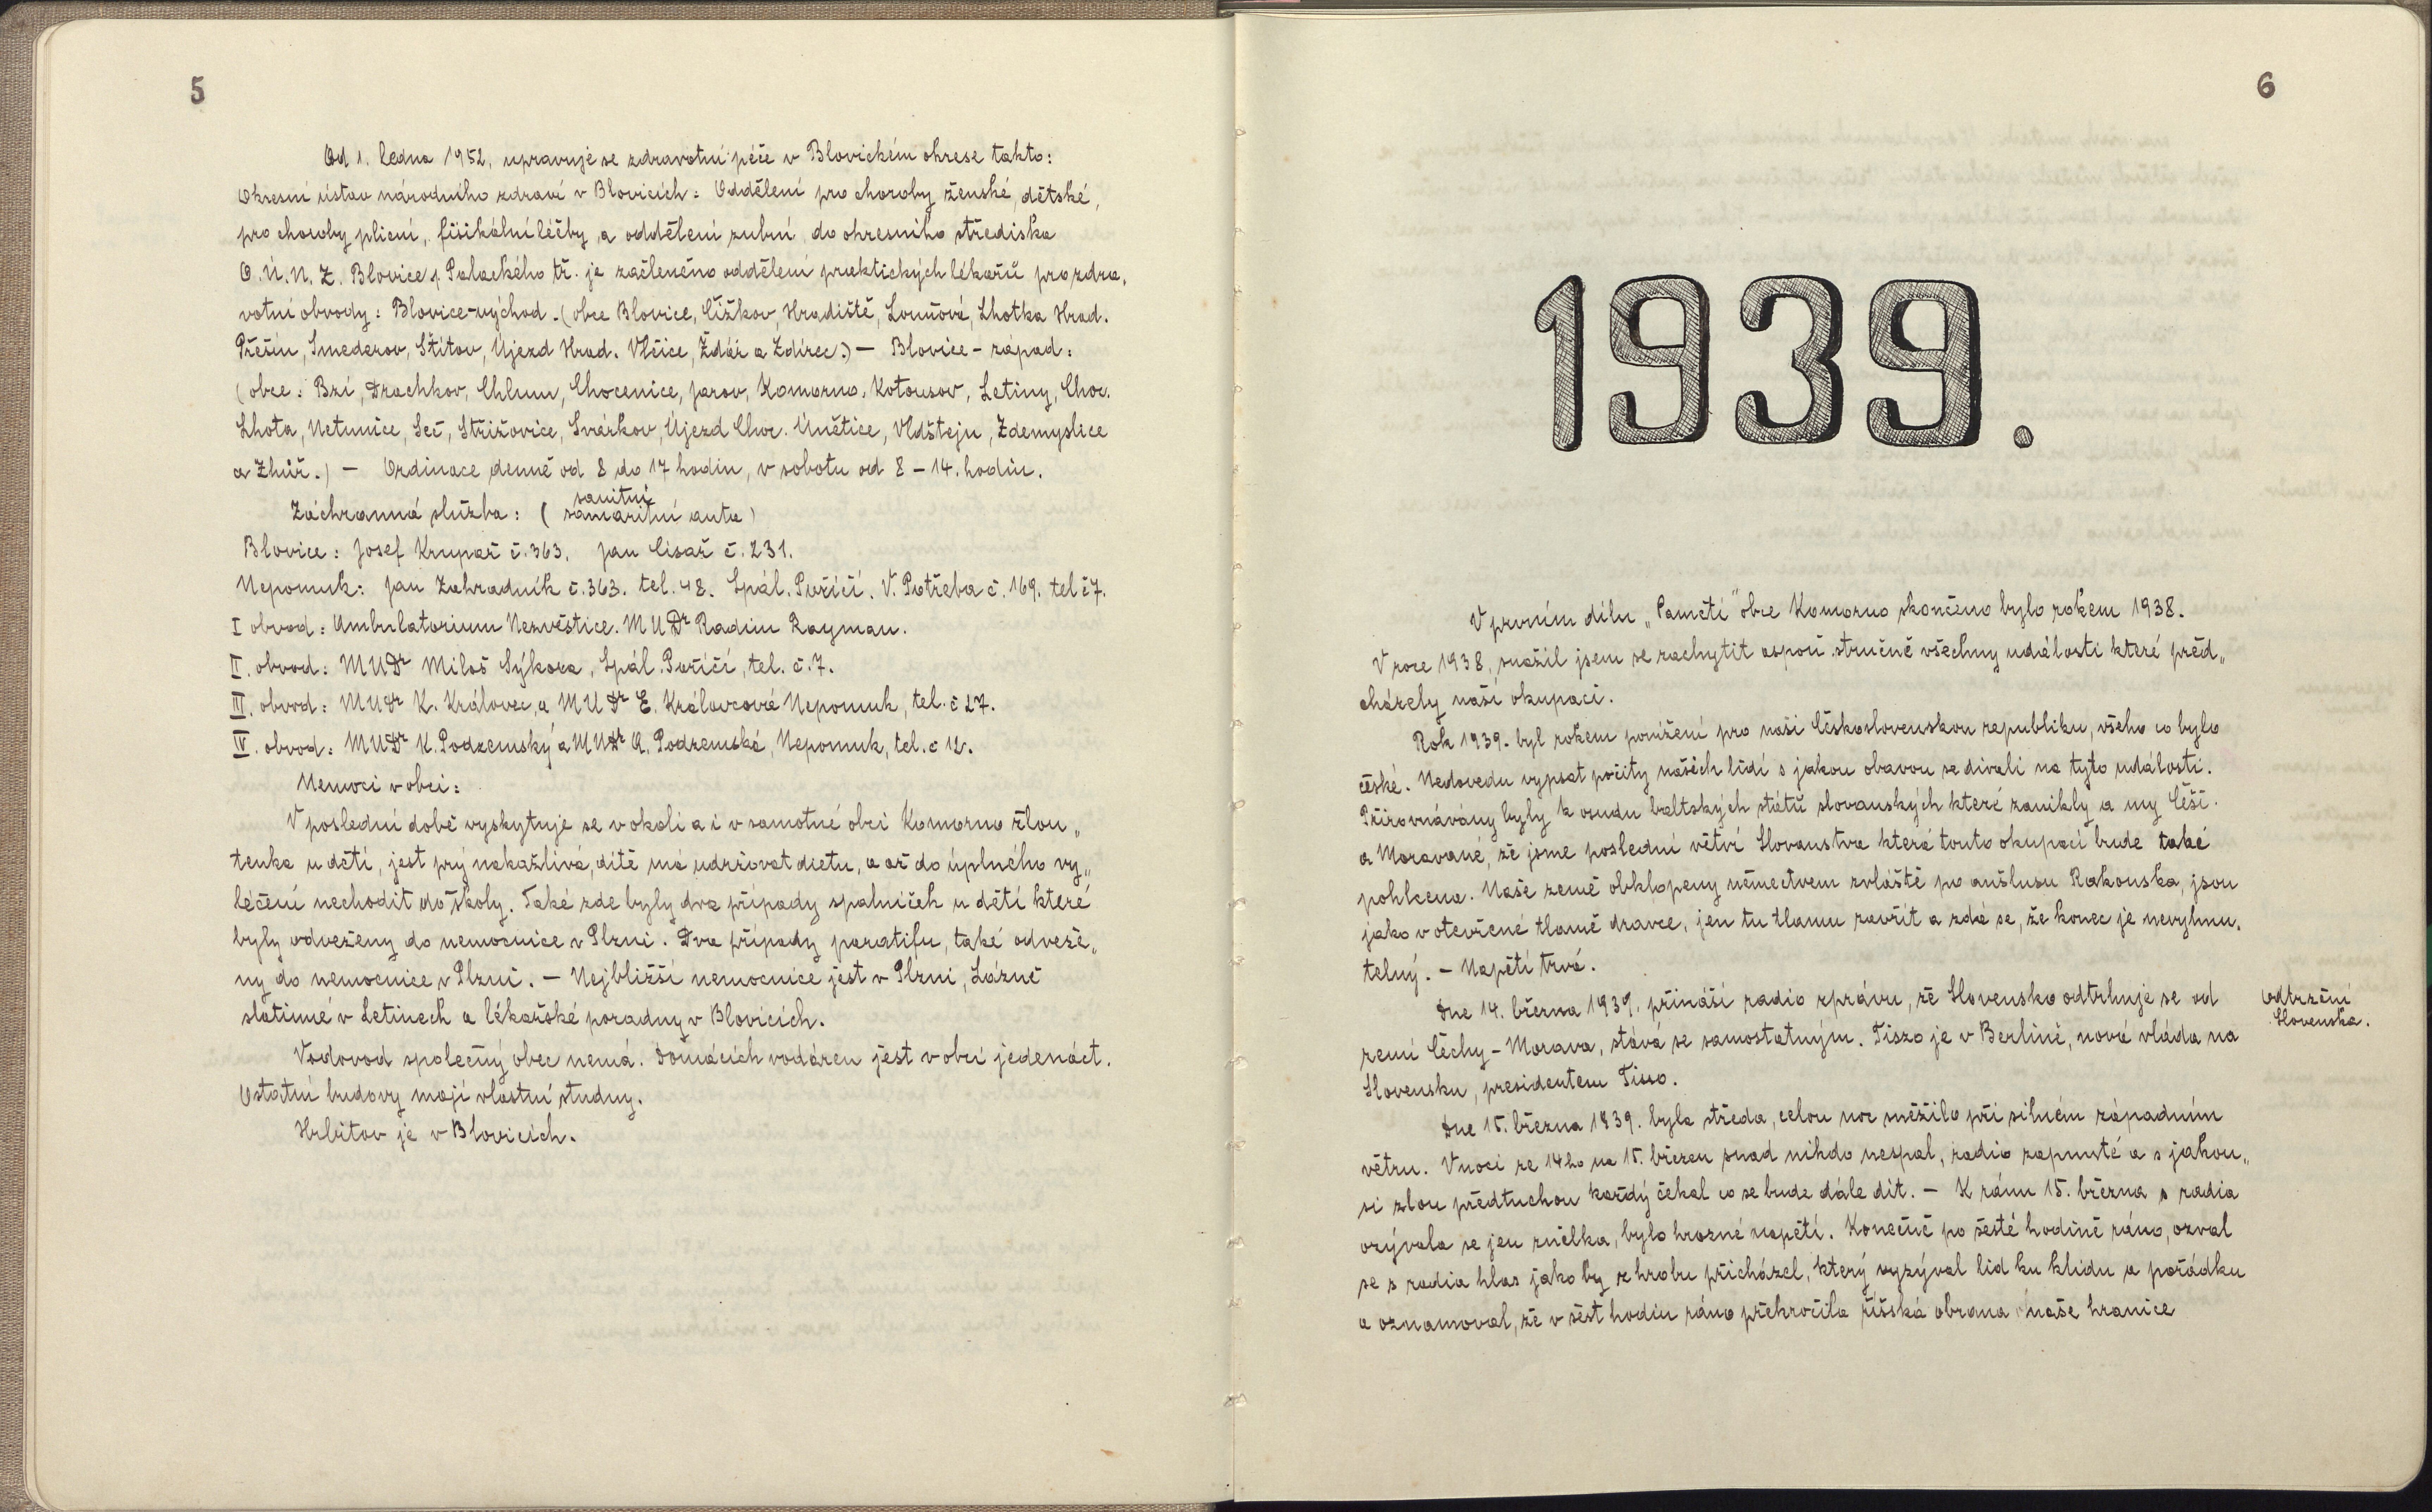 5
Od 1. ledna 1952, upravuje se zdravotní péče v Blovickém okrese takto:
Okresní ústav národního zdraví v Blovicích: Oddělení pro choroby ženské, dětské,
pro choroby plicní, fisikální léčby, a oddělení zubní, do okresního střediska
O. Ú. N. Z. Blovice, Palackého tř. je začleněno oddělení praktických lékařů pro zdra„
votní obvody: Blovice-východ. (obce Blovice, Čížkov, Hradiště, Louňová, Lhotka Hrad.
Přešín, Smederov, Štítov, Újezd Hrad. Vlčice, Ždár a Ždírec.) — Blovice - západ:
(obce: Bzí, Drachkov, Chlum, Chocenice, Jarov, Komorno, Kotousov, Letiny, Choc.
Lhota, Netunice, Seč, Střížovice, Svárkov, Újezd Choc. Únětice, Vlčtejn, Zdemyslice
a Zhůř.) — Ordinace denně od 8 do 17 hodin, v sobotu od 8 - 14. hodin.
sanitní
Záchranná služba: ( samaritní auta)
Blovice: Josef Krupař č. 363. Jan Císař č. 231.
Nepomuk: Jan Zahradník č. 363. tel. 48. Spál. Poříčí. V. Potřeba č. 169. tel č 7.
I obvod: Ambulatorium Nezvěstice. MUDr Radim Rayman.
II. obvod: MUDr Miloš Sýkora, Spál. Poříčí, tel. č. 7.
III. obvod: MUDr K. Královec, a MUDr E. Královcová Nepomuk, tel. č 27.
IV. obvod: MUDr K. Podzemský a MUDr A. Podzemská, Nepomuk, tel. č 12.
Nemoci v obci:
V poslední době vyskytuje se v okolí a i v samotné obci Komorno žlou„
tenka u dětí, jest prý nakažlivá, dítě má udržovat dietu, a až do úplného vy„
léčení nechodit do školy. Také zde byly dva případy spalniček u dětí které
byly odvezeny do nemocnice v Plzni. Dva případy paratifu, také odveze„
ny do nemocnice v Plzni. — Nejbližší nemocnice jest v Plzni, Lázně
slatinné v Letinech a lékařské poradny v Blovicích.
Vodovod společný obec nemá. Domácích vodáren jest v obci jedenáct.
Ostatní budovy mají vlastní studny.
Hřbitov je v Blovicích.
6
1939.
V prvním dílu „Pamětí" obce Komorno skončeno bylo rokem 1938.
V roce 1938, snažil jsem se zachytit aspoň stručně všechny události které před„
cházely naší okupaci.
Rok 1939. byl rokem ponížení pro naši Československou republiku, všeho co bylo
české. Nedovedu vypsat pocity našich lidí s jakou obavou se dívali na tyto události.
Přirovnávány byly k osudu baltských států slovanských které zanikly a my Češi
a Moravané, že jsme poslední větví Slovanstva která touto okupací bude také
pohlcena. Naše země obklopeny němectvem zvláště po anšlusu Rakouska, jsou
jako v otevřené tlamě dravce, jen tu tlamu zavřít a zdá se, že konec je nevyhnu„
telný. — Napětí trvá.
Dne 14. března 1939. přináší radio zprávu, že Slovensko odtrhuje se od
zemí Čechy - Morava, stává se samostatným. Tiszo je v Berlíně, nová vláda na
Slovensku, presidentem Tisso.
Odtržení
Slovenska.
Dne 15. března 1939. byla středa, celou noc sněžilo při silném západním
větru. V noci ze 14ho na 15. březen snad nikdo nespal, radio zapnuté a s jakou„
si zlou předtuchou každý čekal co se bude dále dít. — K ránu 15. března s radia
ozývala se jen znělka, bylo hrozné napětí. Konečně po šesté hodině ráno, ozval
se s radia hlas jako by z hrobu přicházel, který vyzýval lid ku klidu a pořádku
a oznamoval, že v šest hodin ráno překročila říšská obrana naše hranice